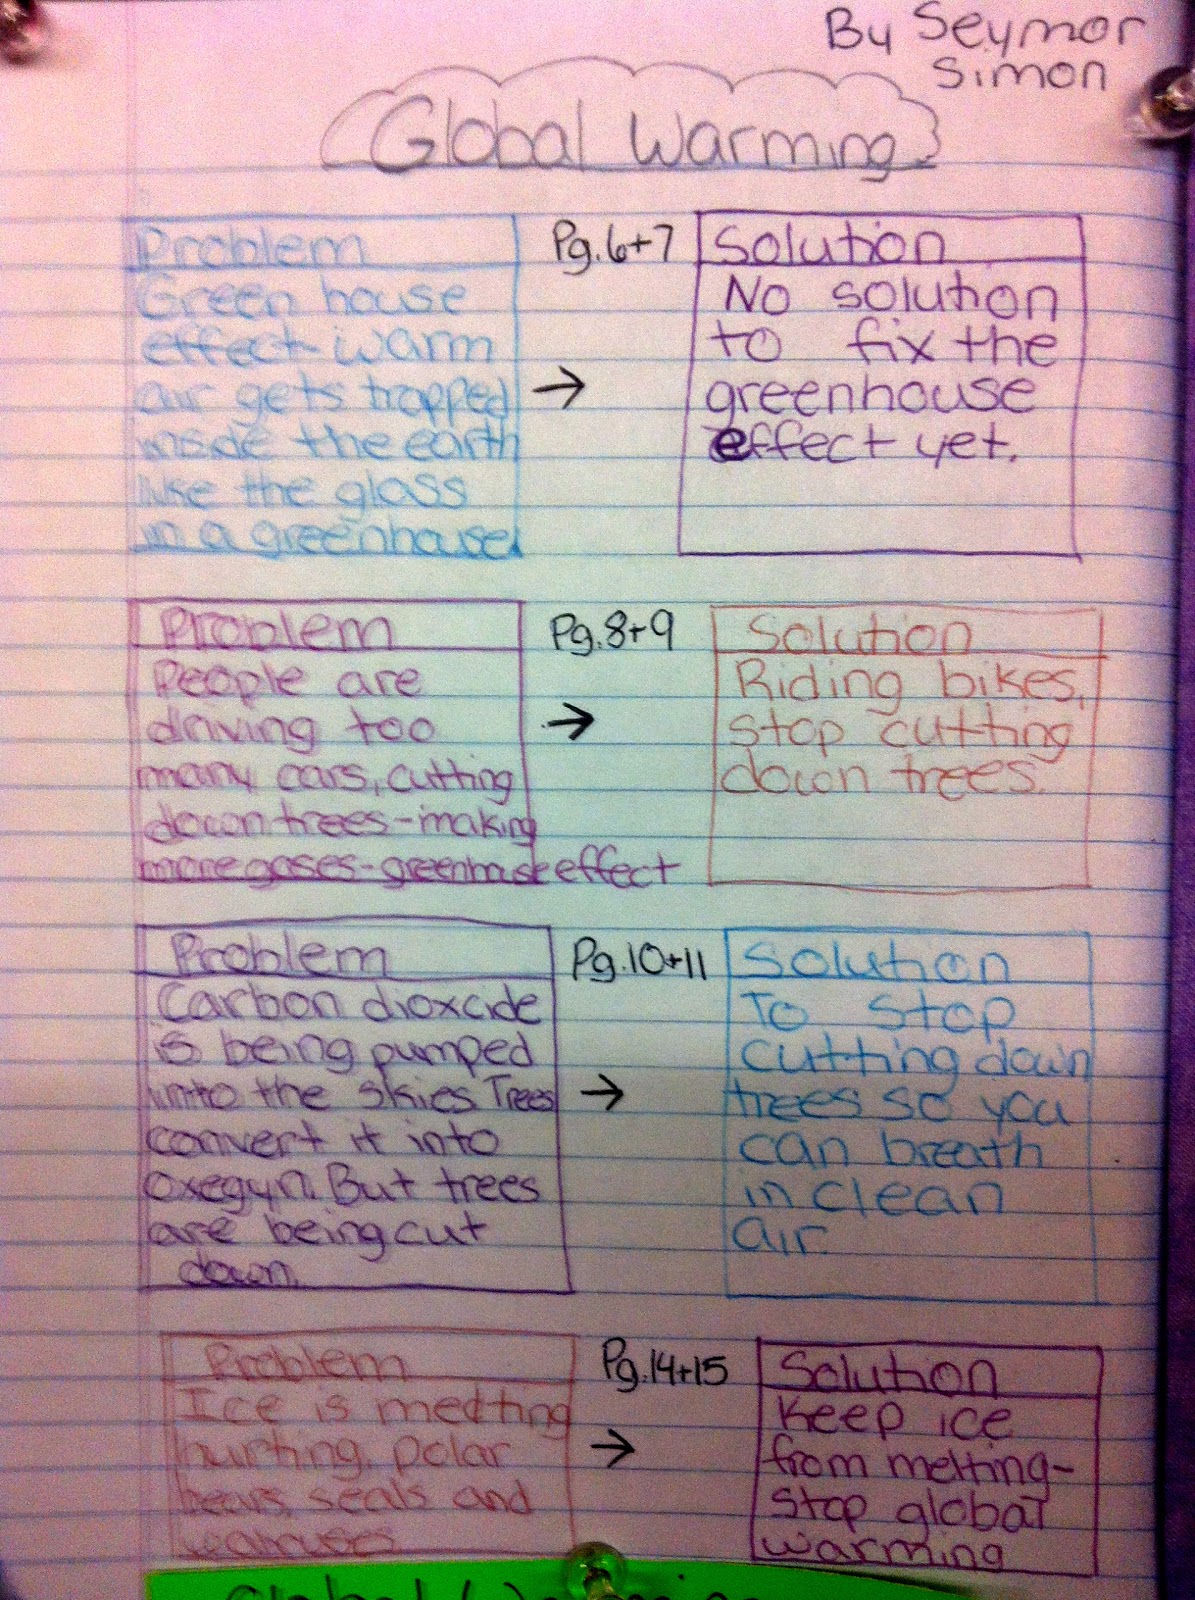 By Seymor
Simon
Global Warming
Problem
Green house
effect-warm
air gets trapped
inside the earth
like the glass
in a greenhouse.
Pg. 6+7
→
Solution
No solution
to fix the
greenhouse
effect yet.
Problem
People are
driving too
many cars, cutting
down trees-making
more gases-greenhouse effect
Pg. 8+9
→
Solution
Riding bikes,
stop cutting
down trees.
Problem
Carbon dioxcide
is being pumped
into the skies Trees
convert it into
oxegyn. But trees
are being cut
down.
Pg. 10+11
→
Solution
To stop
cutting down
trees so you
can breath
in clean
air.
Problem
Ice is melting
hurting polar
bears, seals and
Pg. 14+15
→
Solution
Keep ice
from melting-
stop global
warming
Global